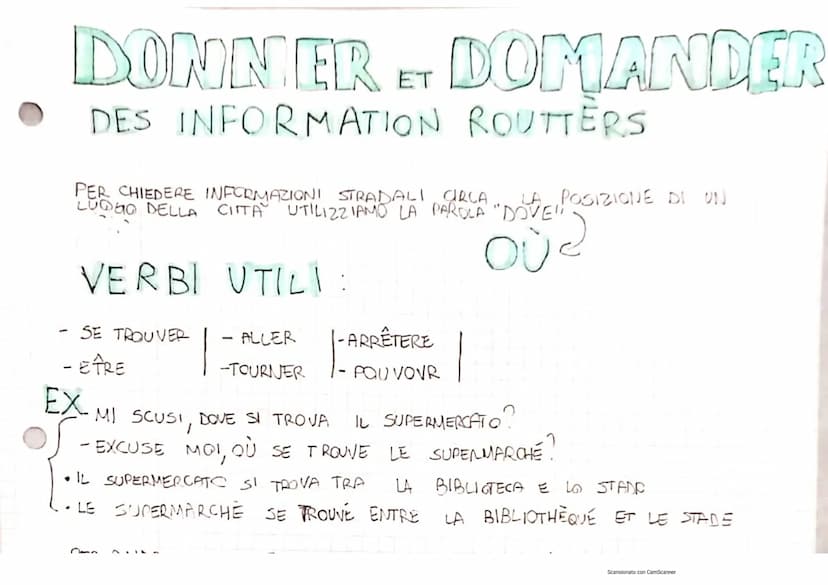 DONNER ET DOMANDER
DES INFORMATION ROUTTÈRS
PER CHIEDERE INFORMAZIONI STRADALI CIRCA LA POSIZIONE DI UN
LUOGO DELLA CITTÀ UTILIZZIAMO LA PAROLA "DOVE"
OÙ
VERBI UTILI :
- SE TROUVER | - ALLER | - ARRÊTERE |
- ETRE | - TOURNER | - POUVOVR |
EX - MI SCUSI, DOVE SI TROVA IL SUPERMERCATO?
- EXCUSE MOI, OÙ SE TROUVE LE SUPERMARCHÉ?
• IL SUPERMERCATO SI TROVA TRA LA BIBLIOTECA E LO
• LE SUPERMARCHÉ SE TROUVÉ ENTRE LA BIBLIOTHÈQUÉ ET LE STADE
Scansionato con CamScanner